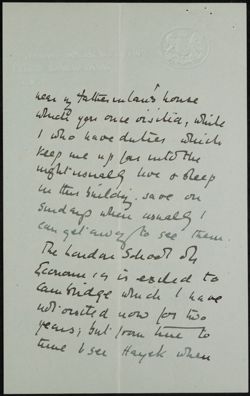 near my father-in-law's house
which you once visited, while
I who have duties which
keep me up far into the
night usually live & sleep
in this building, save on
Sundays when usually I
can get away to see them.
The London School of
Economics is exiled to
Cambridge which I have
not visited now for two
years; but from time to
time I see Hayek when